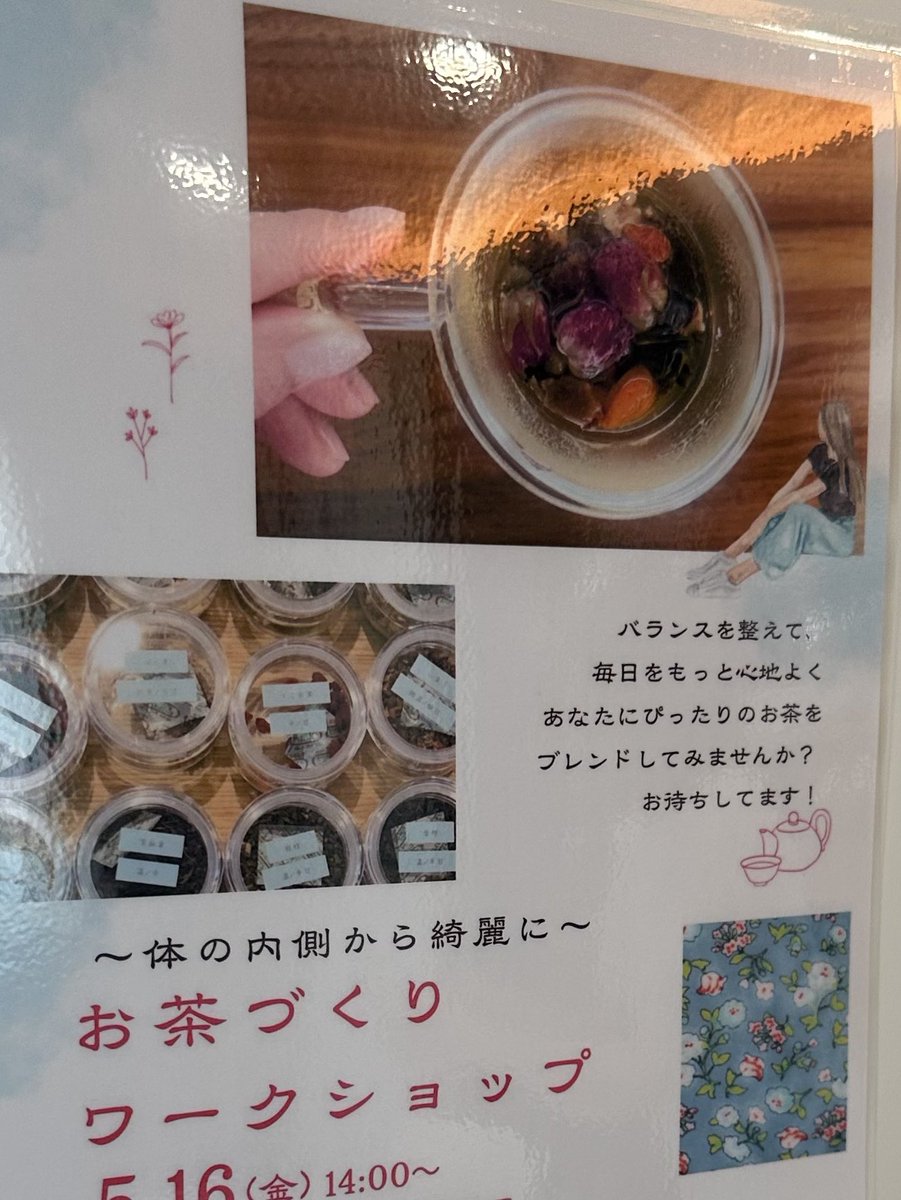 バランスを整えて、
毎日をもっと心地よく
あなたにぴったりのお茶を
ブレンドしてみませんか？
お待ちしてます！
～体の内側から綺麗に～
お茶づくり
ワークショップ
5.16（金）14:00～